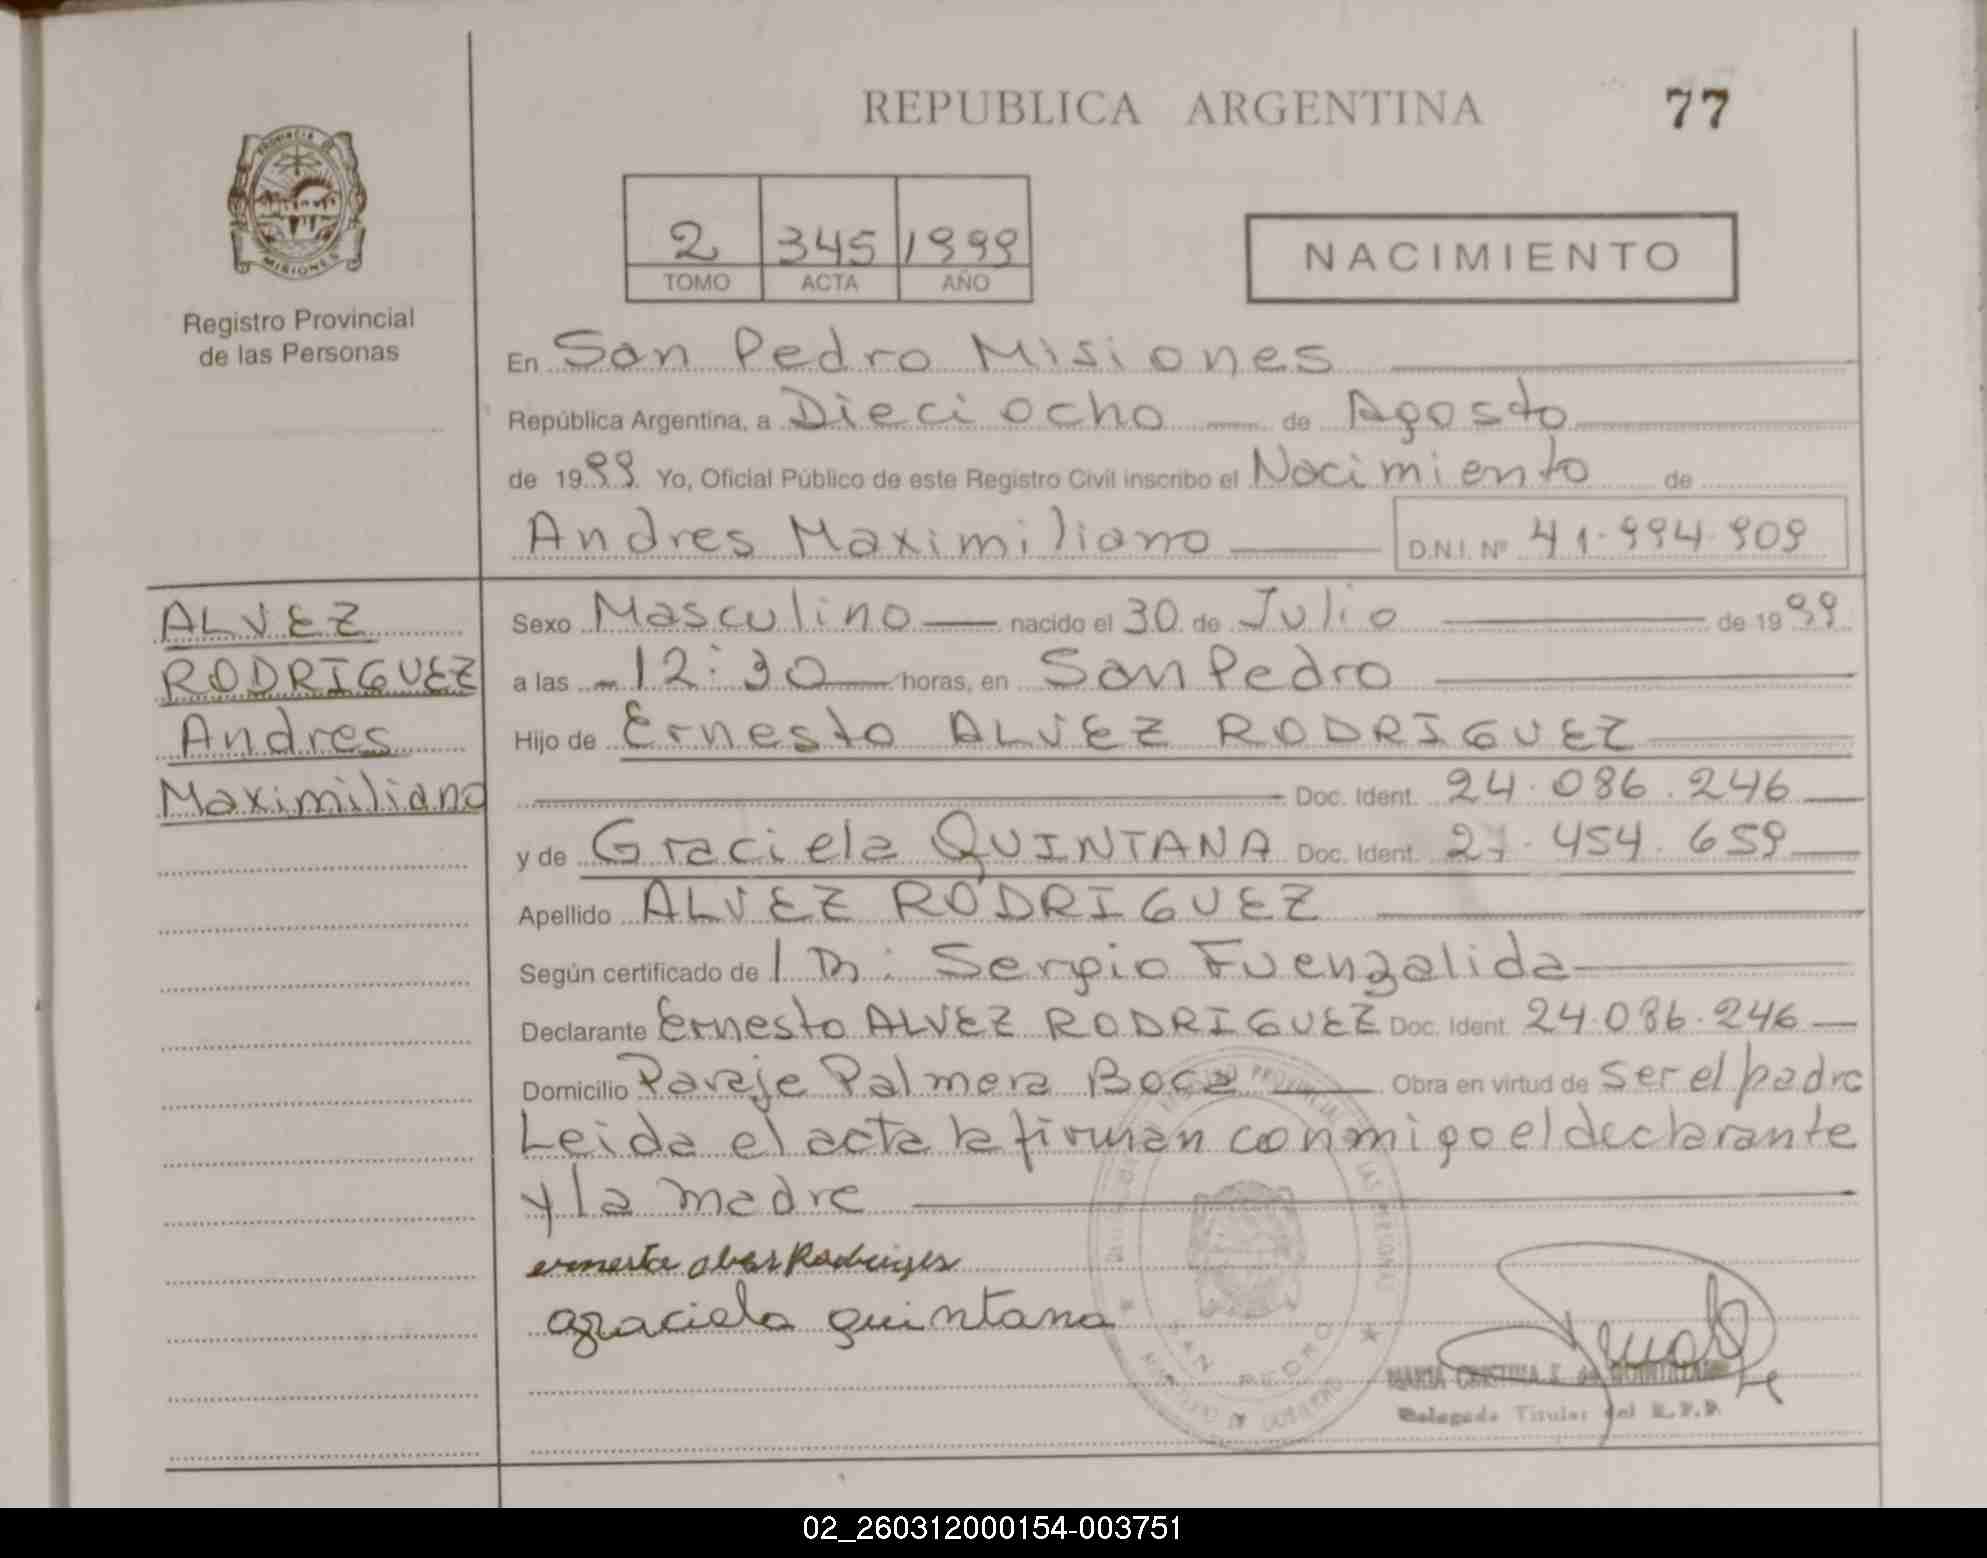 REPUBLICA ARGENTINA
77
PROVINCIA DE
MISIONES
Registro Provincial
de las Personas
2 345 1999
TOMO ACTA AÑO
NACIMIENTO
En San Pedro Misiones
República Argentina, a Dieciocho de Agosto
de 1999 Yo, Oficial Público de este Registro Civil inscribo el Nacimiento de
Andres Maximiliano D.N.I. Nº 41.994.909
ALVEZ
RODRIGUEZ
Andres
Maximiliano
Sexo Masculino nacido el 30 de Julio de 1999
a las 12:30 horas, en San Pedro
Hijo de Ernesto ALVEZ RODRIGUEZ
Doc. Ident. 24.086.246
y de Graciela QUINTANA Doc. Ident. 27.454.659
Apellido ALVEZ RODRIGUEZ
Según certificado de Sergio Fuenzalida
Declarante Ernesto ALVEZ RODRIGUEZ Doc. Ident. 24.086.246
Domicilio Paraje Palmera Boca Obra en virtud de ser el padre
Leida el acta la firman conmigo el declarante
y la madre
graciela quintana
SAN PEDRO
MARIA CRISTINA
Delegada Titular del R.P.P.
02_260312000154-003751